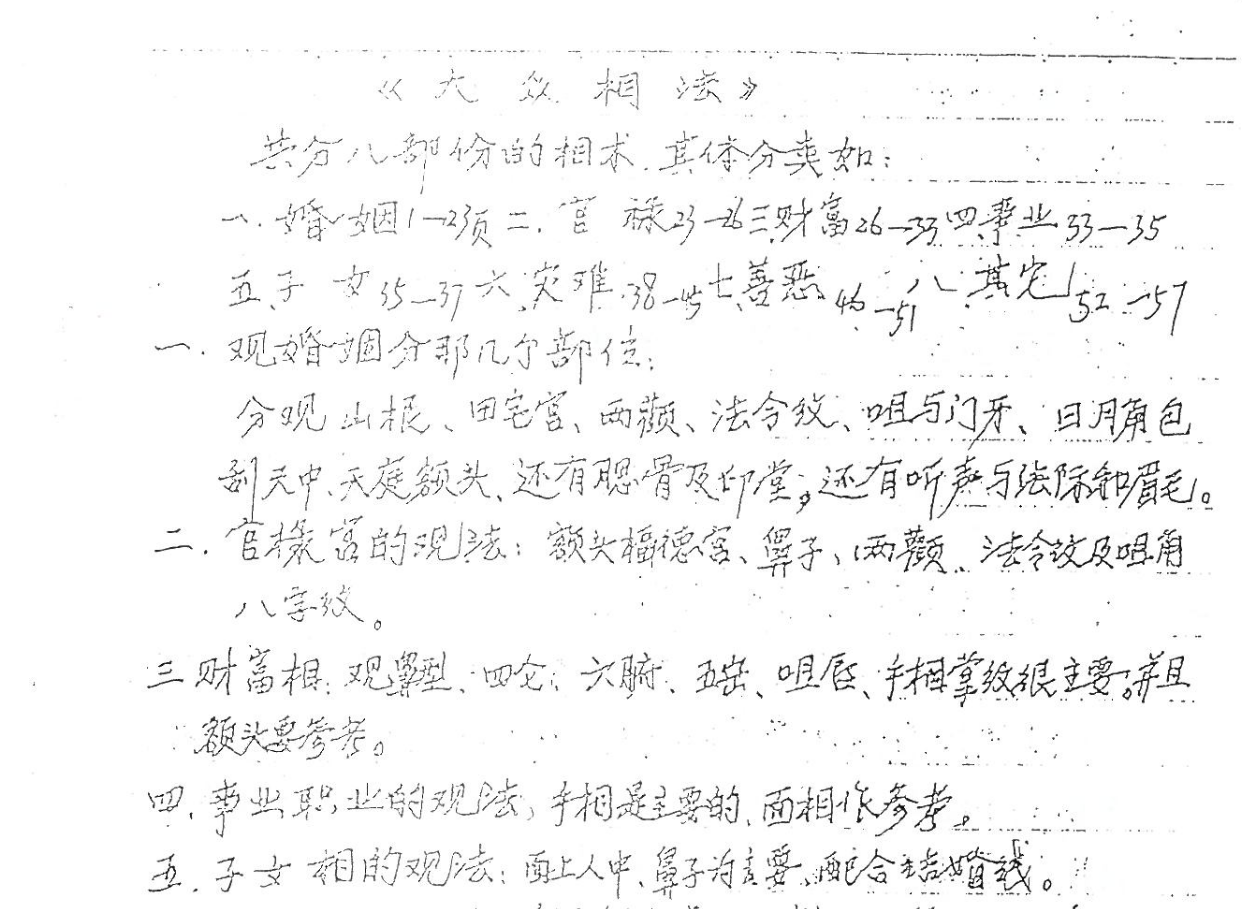 《大众相法》
共分八部份的相术.其体分类如:
一.婚姻1—23页二.官禄23—26三.财富26—33四.事业33—35
五.子女35—37六.灾难.38—45七.善恶46—51八.其它52—57
一.观婚姻分那几个部位:
分观山根、田宅宫、两颧、法令纹、咀与门牙、日月角包
刮天中、天庭额头、还有腮骨及印堂,还有听声与法际和眉毛。
二.官禄宫的观法:额头福德宫、鼻子、两颧、法令纹及咀角
八字纹。
三.财富相:观鼻型、四仑、六腑、五岳、咀唇、手相掌纹很主要.并且
额头要参考。
四.事业职业的观法,手相是主要的、面相作参考。
五.子女相的观法:面上人中、鼻子为主要、配合结婚线。